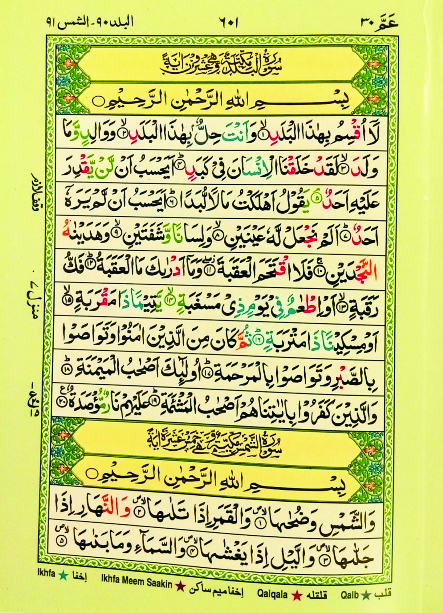 عَمَّ ٣٠ ٦٠١ البلد ٩٠ - الشمس ٩١
سُوْرَةُ الْبَلَدِ مَكِّيَّةٌ وَّهِيَ عِشْرُوْنَ اٰيَةً
بِسْــمِ اللهِ الرَّحْمٰنِ الرَّحِيْمِ
لَاۤ اُقْسِمُ بِهٰذَا الْبَلَدِۙ۝۱ وَاَنْتَ حِلٌّۢ بِهٰذَا الْبَلَدِۙ۝۲ وَوَالِدٍ وَّمَا
وَلَدَۙ۝۳ لَقَدْ خَلَقْنَا الْاِنْسَانَ فِيْ كَبَدٍؕ۝۴ اَيَحْسَبُ اَنْ لَّنْ يَّقْدِرَ
عَلَيْهِ اَحَدٌۘ۝۵ يَقُوْلُ اَهْلَكْتُ مَالًا لُّبَدًاؕ۝۶ اَيَحْسَبُ اَنْ لَّمْ يَرَهٗۤ
اَحَدٌؕ۝۷ اَلَمْ نَجْعَلْ لَّهٗ عَيْنَيْنِۙ۝۸ وَلِسَانًا وَّشَفَتَيْنِۙ۝۹ وَهَدَيْنٰهُ
النَّجْدَيْنِۚ۝۱۰ فَلَا اقْتَحَمَ الْعَقَبَةَؗۖ۝۱۱ وَمَاۤ اَدْرٰىكَ مَا الْعَقَبَةُؕ۝۱۲ فَكُّ
رَقَبَةٍۙ۝۱۳ اَوْ اِطْعٰمٌ فِيْ يَوْمٍ ذِيْ مَسْغَبَةٍۙ۝۱۴ يَّتِيْمًا ذَا مَقْرَبَةٍۙ۝۱۵
اَوْ مِسْكِيْنًا ذَا مَتْرَبَةٍؕ۝۱۶ ثُمَّ كَانَ مِنَ الَّذِيْنَ اٰمَنُوْا وَتَوَاصَوْا
بِالصَّبْرِ وَتَوَاصَوْا بِالْمَرْحَمَةِؕ۝۱۷ اُولٰٓئِكَ اَصْحٰبُ الْمَيْمَنَةِؕ۝۱۸
وَالَّذِيْنَ كَفَرُوْا بِاٰيٰتِنَا هُمْ اَصْحٰبُ الْمَشْـَٔمَةِؕ۝۱۹ عَلَيْهِمْ نَارٌ مُّؤْصَدَةٌ۝۲۰
سُوْرَةُ الشَّمْسِ مَكِّيَّةٌ وَّهِيَ خَمْسَ عَشْرَةَ اٰيَةً
بِسْــمِ اللهِ الرَّحْمٰنِ الرَّحِيْمِ
وَالشَّمْسِ وَضُحٰىهَا۝۱ وَالْقَمَرِ اِذَا تَلٰىهَا۝۲ وَالنَّهَارِ اِذَا
جَلّٰىهَا۝۳ وَالَّيْلِ اِذَا يَغْشٰىهَا۝۴ وَالسَّمَآءِ وَمَا بَنٰىهَا۝۵
منزل ۷
Ikhfa ★ إخفا Ikhfa Meem Saakin ★ إخفا ميم ساكن Qalqala ★ قلقله Qalb ★ قلب